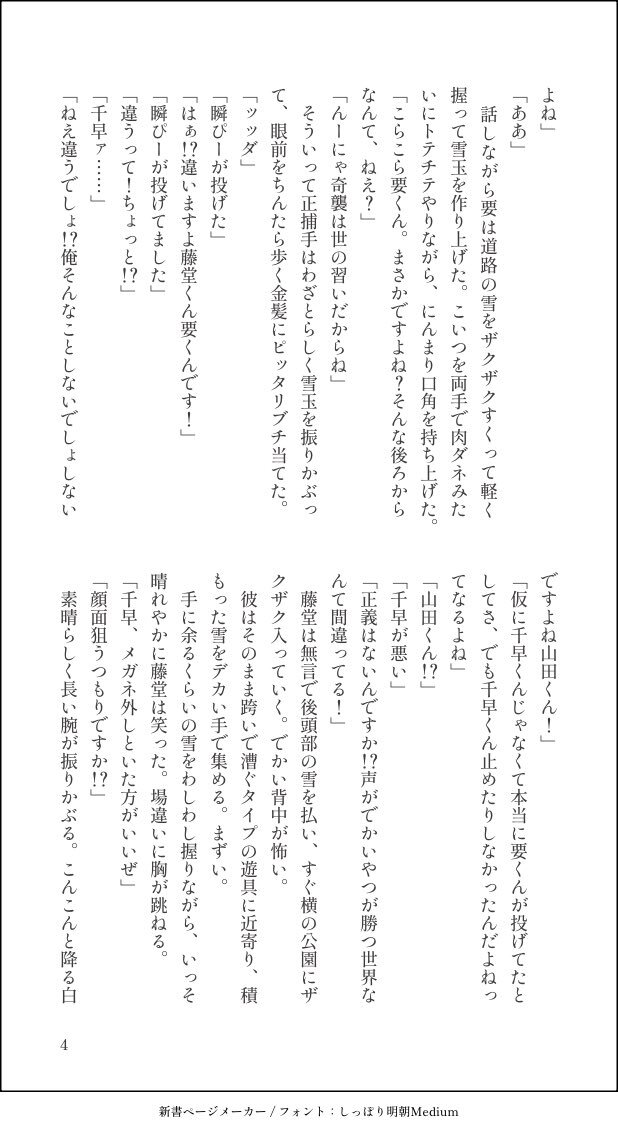 よね」
「ああ」
　話しながら要は道路の雪をザクザクすくって軽く
握って雪玉を作り上げた。こいつを両手で肉ダネみた
いにトテチテやりながら、にんまり口角を持ち上げた。
「こらこら要くん。まさかですよね？そんな後ろから
なんて、ねえ？」
「んーにゃ奇襲は世の習いだからね」
　そういって正捕手はわざとらしく雪玉を振りかぶっ
て、眼前をちんたら歩く金髪にピッタリブチ当てた。
「ッッダ」
「瞬ぴーが投げた」
「はぁ!?違いますよ藤堂くん要くんです！」
「瞬ぴーが投げてました」
「違うって！ちょっと!?」
「千早ァ……」
「ねえ違うでしょ!?俺そんなことしないでしょしない
ですよね山田くん！」
「仮に千早くんじゃなくて本当に要くんが投げてたと
してさ、でも千早くん止めたりしなかったんだよねっ
てなるよね」
「山田くん!?」
「千早が悪い」
「正義はないんですか!?声がでかいやつが勝つ世界な
んて間違ってる！」
　藤堂は無言で後頭部の雪を払い、すぐ横の公園にザ
クザク入っていく。でかい背中が怖い。
　彼はそのまま跨いで漕ぐタイプの遊具に近寄り、積
もった雪をデカい手で集める。まずい。
　手に余るくらいの雪をわしわし握りながら、いっそ
晴れやかに藤堂は笑った。場違いに胸が跳ねる。
「千早、メガネ外しといた方がいいぜ」
「顔面狙うつもりですか!?」
　素晴らしく長い腕が振りかぶる。こんこんと降る白
4
新書ページメーカー / フォント：しっぽり明朝Medium